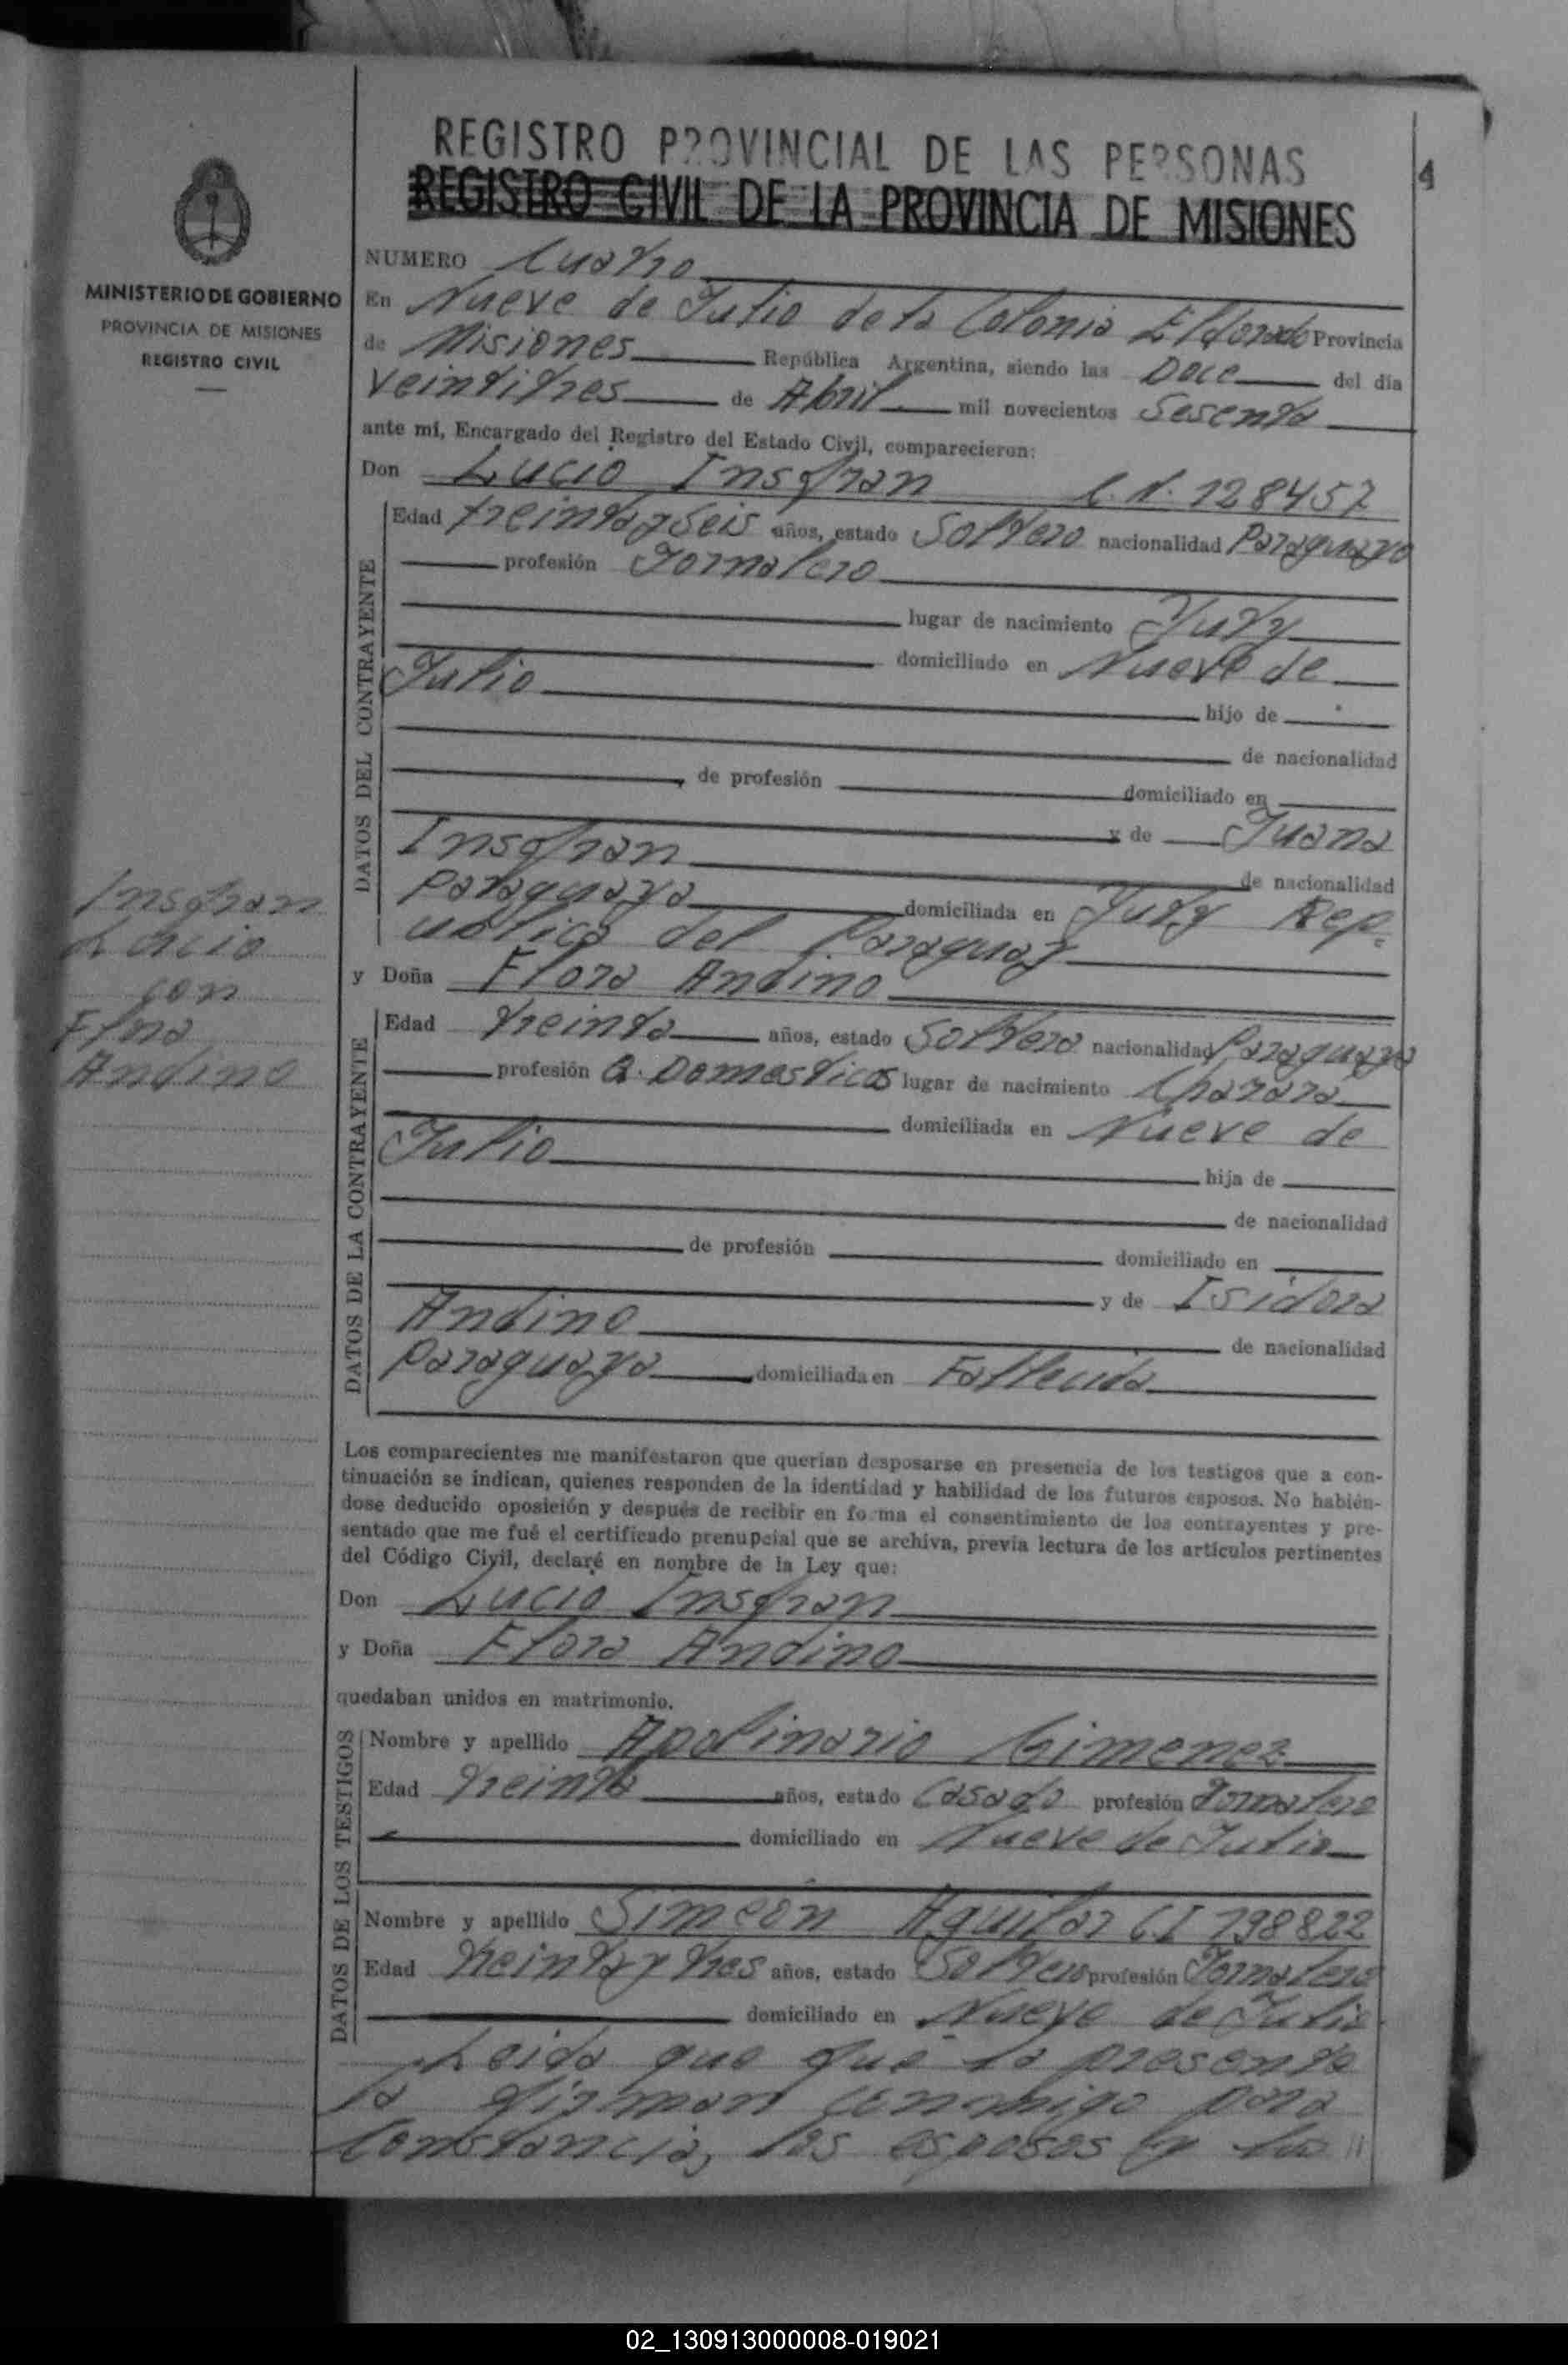 REGISTRO PROVINCIAL DE LAS PERSONAS
REGISTRO CIVIL DE LA PROVINCIA DE MISIONES
4
MINISTERIO DE GOBIERNO
PROVINCIA DE MISIONES
REGISTRO CIVIL
NUMERO Cuatro
En Nueve de Julio de la Colonia Eldorado Provincia
de Misiones República Argentina, siendo las Doce del día
veintitres de Abril mil novecientos Sesenta
ante mí, Encargado del Registro del Estado Civil, comparecieron:
Don Lucio Insfran C.N. 128457
DATOS DEL CONTRAYENTE
Edad treinta y seis años, estado Soltero nacionalidad Paraguayo
profesión Jornalero
lugar de nacimiento Yuty
domiciliado en Nueve de
Julio
hijo de
de nacionalidad
de profesión domiciliado en
y de Juana
Insfran
de nacionalidad
Paraguaya domiciliada en Yuty Rep.
ublica del Paraguay
y Doña Flora Andino
Insfran
Lucio
con
Flna
Andino
DATOS DE LA CONTRAYENTE
Edad treinta años, estado Soltera nacionalidad Paraguaya
profesión Q. Domesticos lugar de nacimiento Charara
domiciliada en Nueve de
Julio
hija de
de nacionalidad
de profesión domiciliado en
y de Isidora
Andino
de nacionalidad
Paraguaya domiciliada en Fallecida
Los comparecientes me manifestaron que querían desposarse en presencia de los testigos que a con-
tinuación se indican, quienes responden de la identidad y habilidad de los futuros esposos. No habién-
dose deducido oposición y después de recibir en forma el consentimiento de los contrayentes y pre-
sentado que me fué el certificado prenupcial que se archiva, previa lectura de los artículos pertinentes
del Código Civil, declaré en nombre de la Ley que:
Don Lucio Insfran
y Doña Flora Andino
quedaban unidos en matrimonio.
DATOS DE LOS TESTIGOS
Nombre y apellido Apolinario Gimenez
Edad treinta años, estado Casado profesión Jornalero
domiciliado en Nueve de Julio
Nombre y apellido Simeón Aguilar C I 198822
Edad treinta y tres años, estado Soltero profesión Jornalero
domiciliado en Nueve de Julio
Leida que fué la presente
la firman conmigo para
Constancia, los esposos y los //
02_130913000008-019021